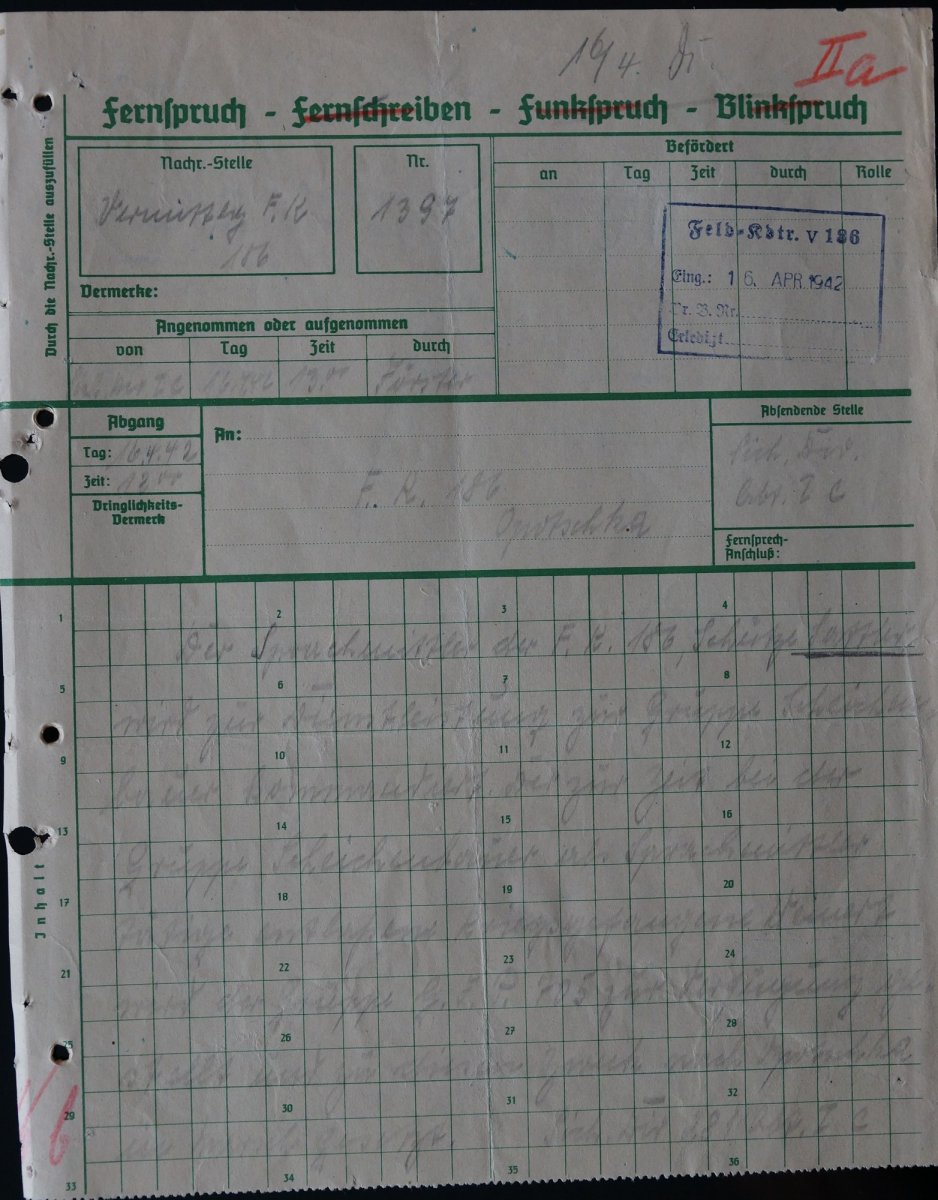 16/4.
IIa
Fernspruch - Fernschreiben - Funkspruch - Blinkspruch
Durch die Nachr.-Stelle auszufüllen
Nachr.-Stelle
F. K
186
Nr.
1397
Befördert
an Tag Zeit durch Rolle
Feld-Kdtr. V 186
Eing.: 16. APR. 1942
Br. B. Nr.
Erledigt
Vermerke:
Angenommen oder aufgenommen
von Tag Zeit durch
16.4.42 13.00 Förster
Abgang
Tag: 16.4.42
Zeit: 12 00
Dringlichkeits-
Vermerk
An:
F. K. 186
Opotschka
Absendende Stelle
Sich. Div.
Abt. I C
Fernsprech-
Anschluß:
Inhalt
1 2 3 4
Der Sprachmittler der F. K. 186, Schütze
5 6 7 8
wird zur Dienstleistung zur Gruppe
9 10 11 12
bauer kommandiert. Der zur Zeit bei der
13 14 15 16
Gruppe Scheichenbauer als Sprachmittler
17 18 19 20
tätige entlassene Kriegsgefangene
21 22 23 24
wird der Gruppe G. F. P. 703 zur Verfügung ge-
25 26 27 28
stellt und zu diesem Zweck nach Opotschka
29 30 31 32
in Marsch gesetzt. Sich Div 281 Abt. I C
33 34 35 36